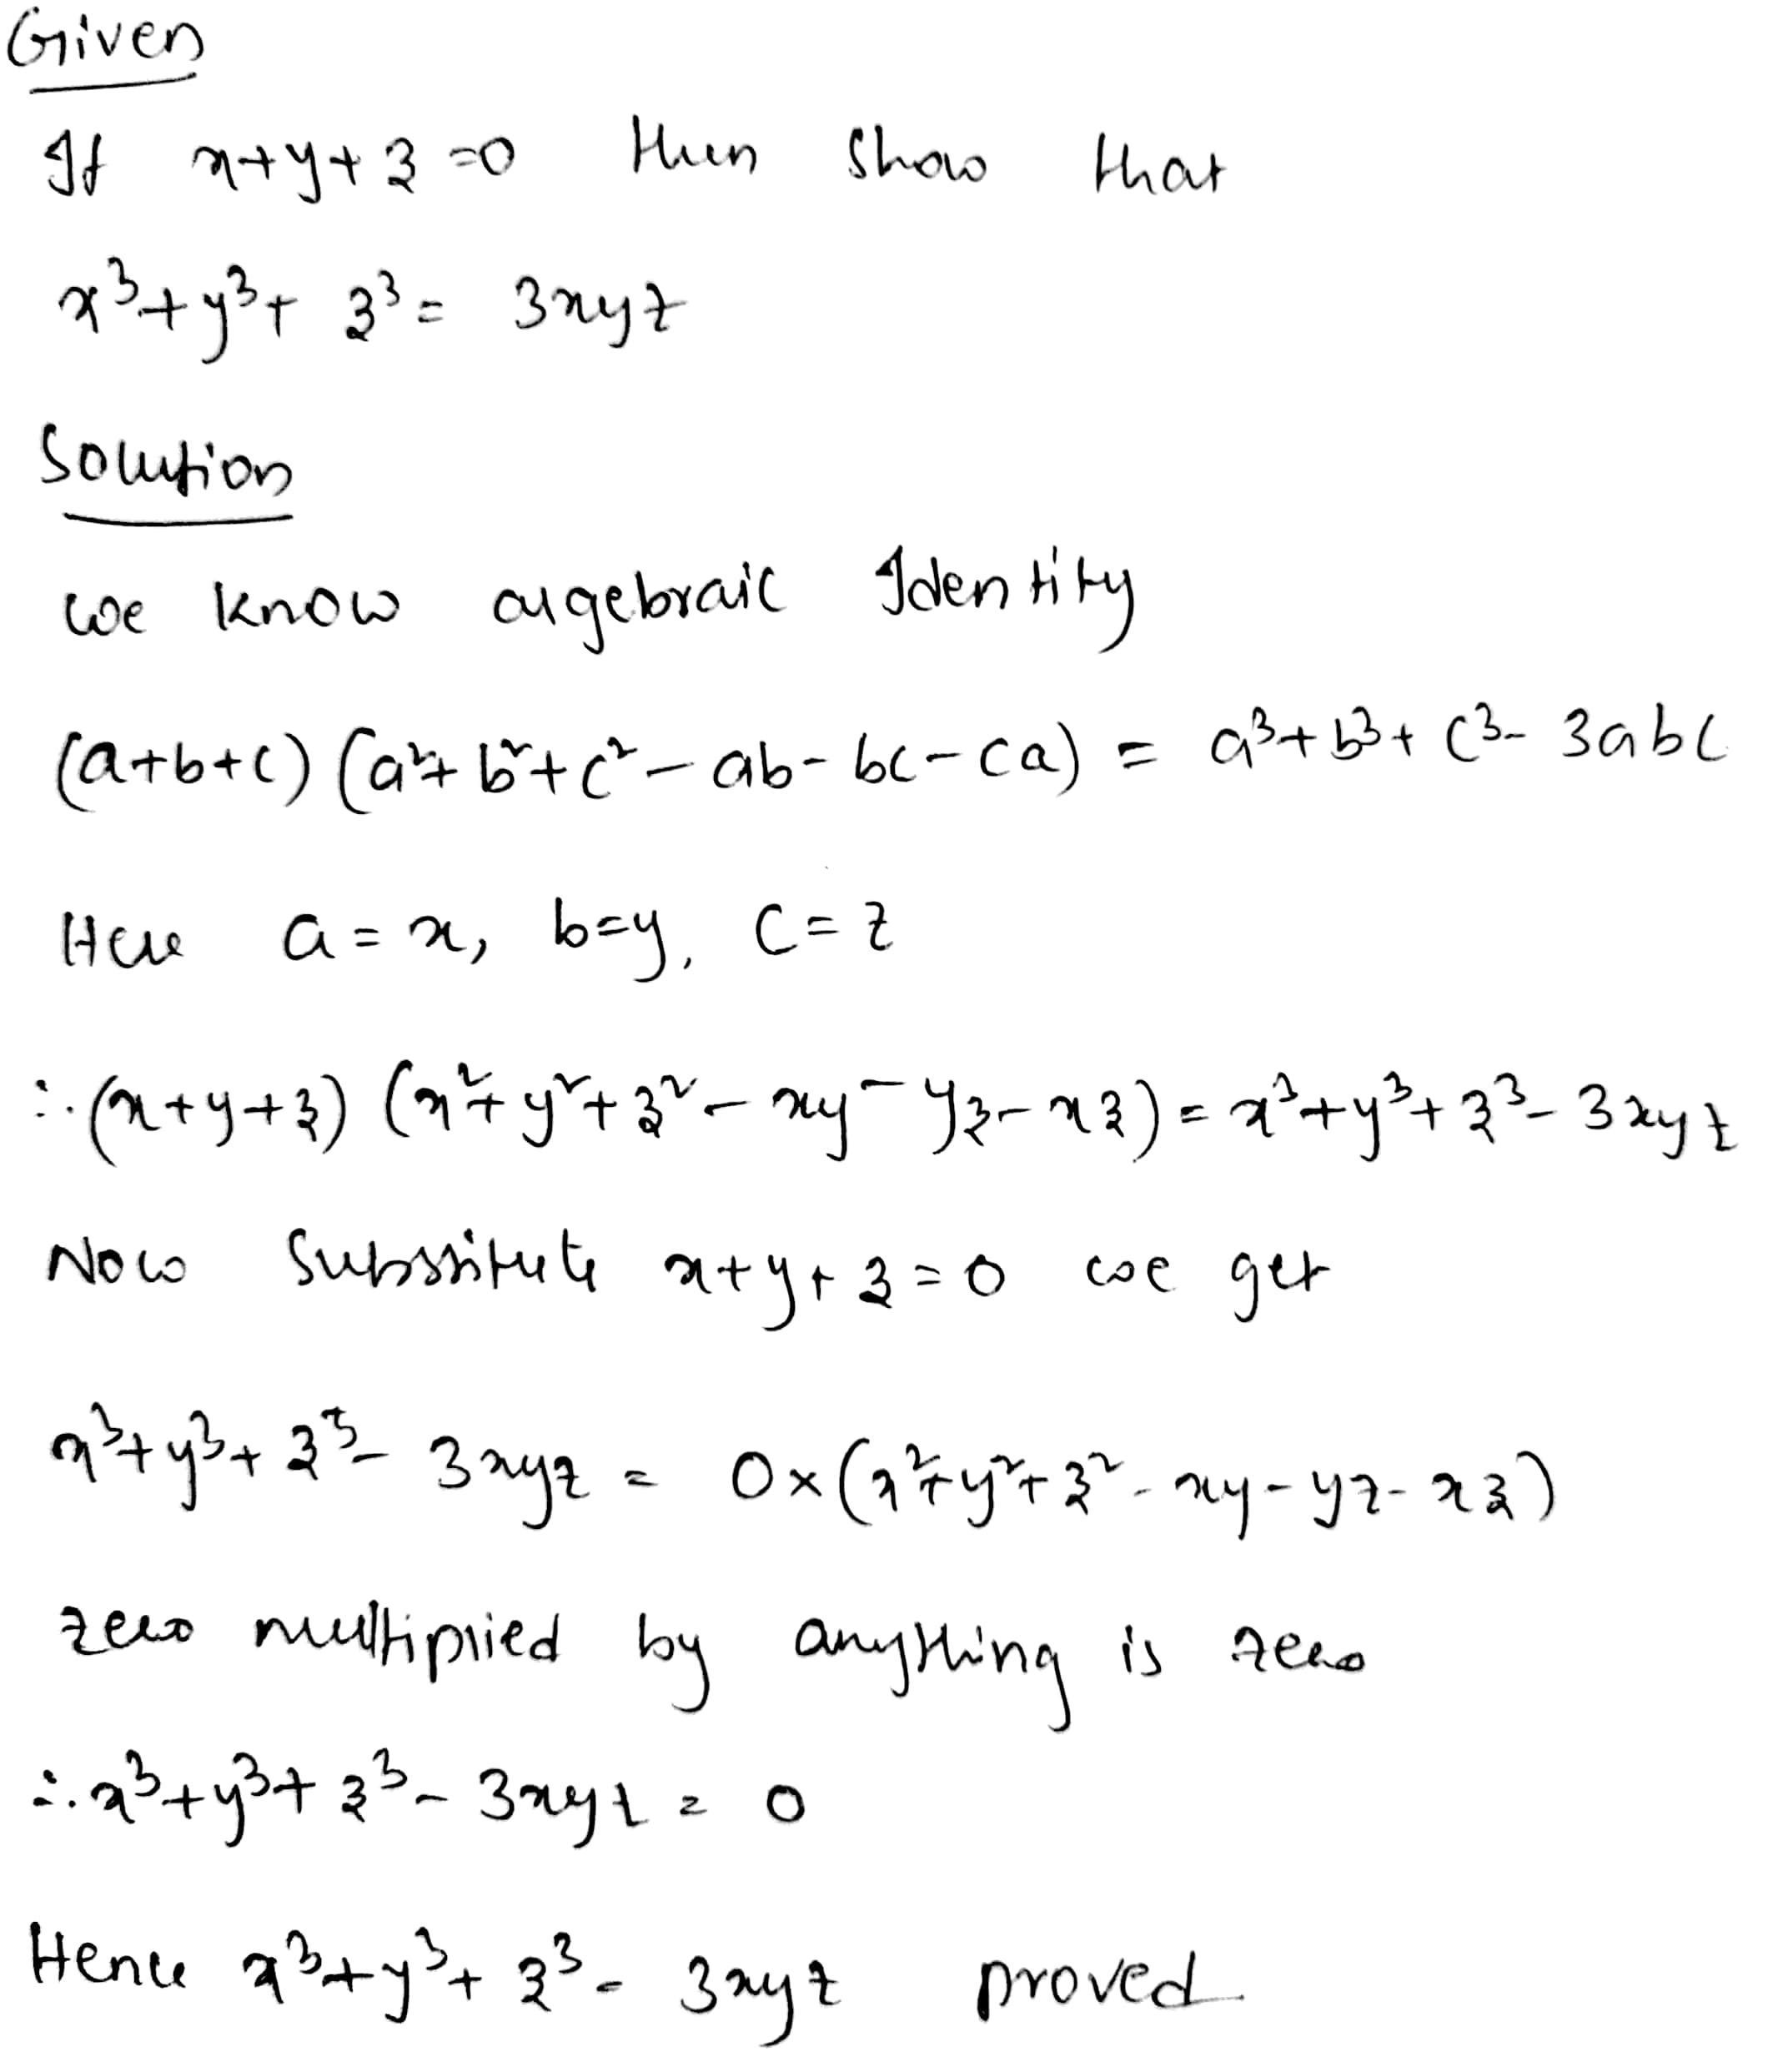 Given
If x+y+z=0 then show that
x³+y³+z³= 3xyz
Solution
we know algebraic Identity
(a+b+c) (a²+b²+c²-ab-bc-ca) = a³+b³+c³-3abc
Here a=x, b=y, c=z
∴(x+y+z) (x²+y²+z²-xy-yz-xz)=x³+y³+z³-3xyz
Now Substitute x+y+z=0 we get
x³+y³+z³-3xyz = 0×(x²+y²+z²-xy-yz-xz)
zero multiplied by anything is zero
∴x³+y³+z³-3xyz = 0
Hence x³+y³+z³= 3xyz proved